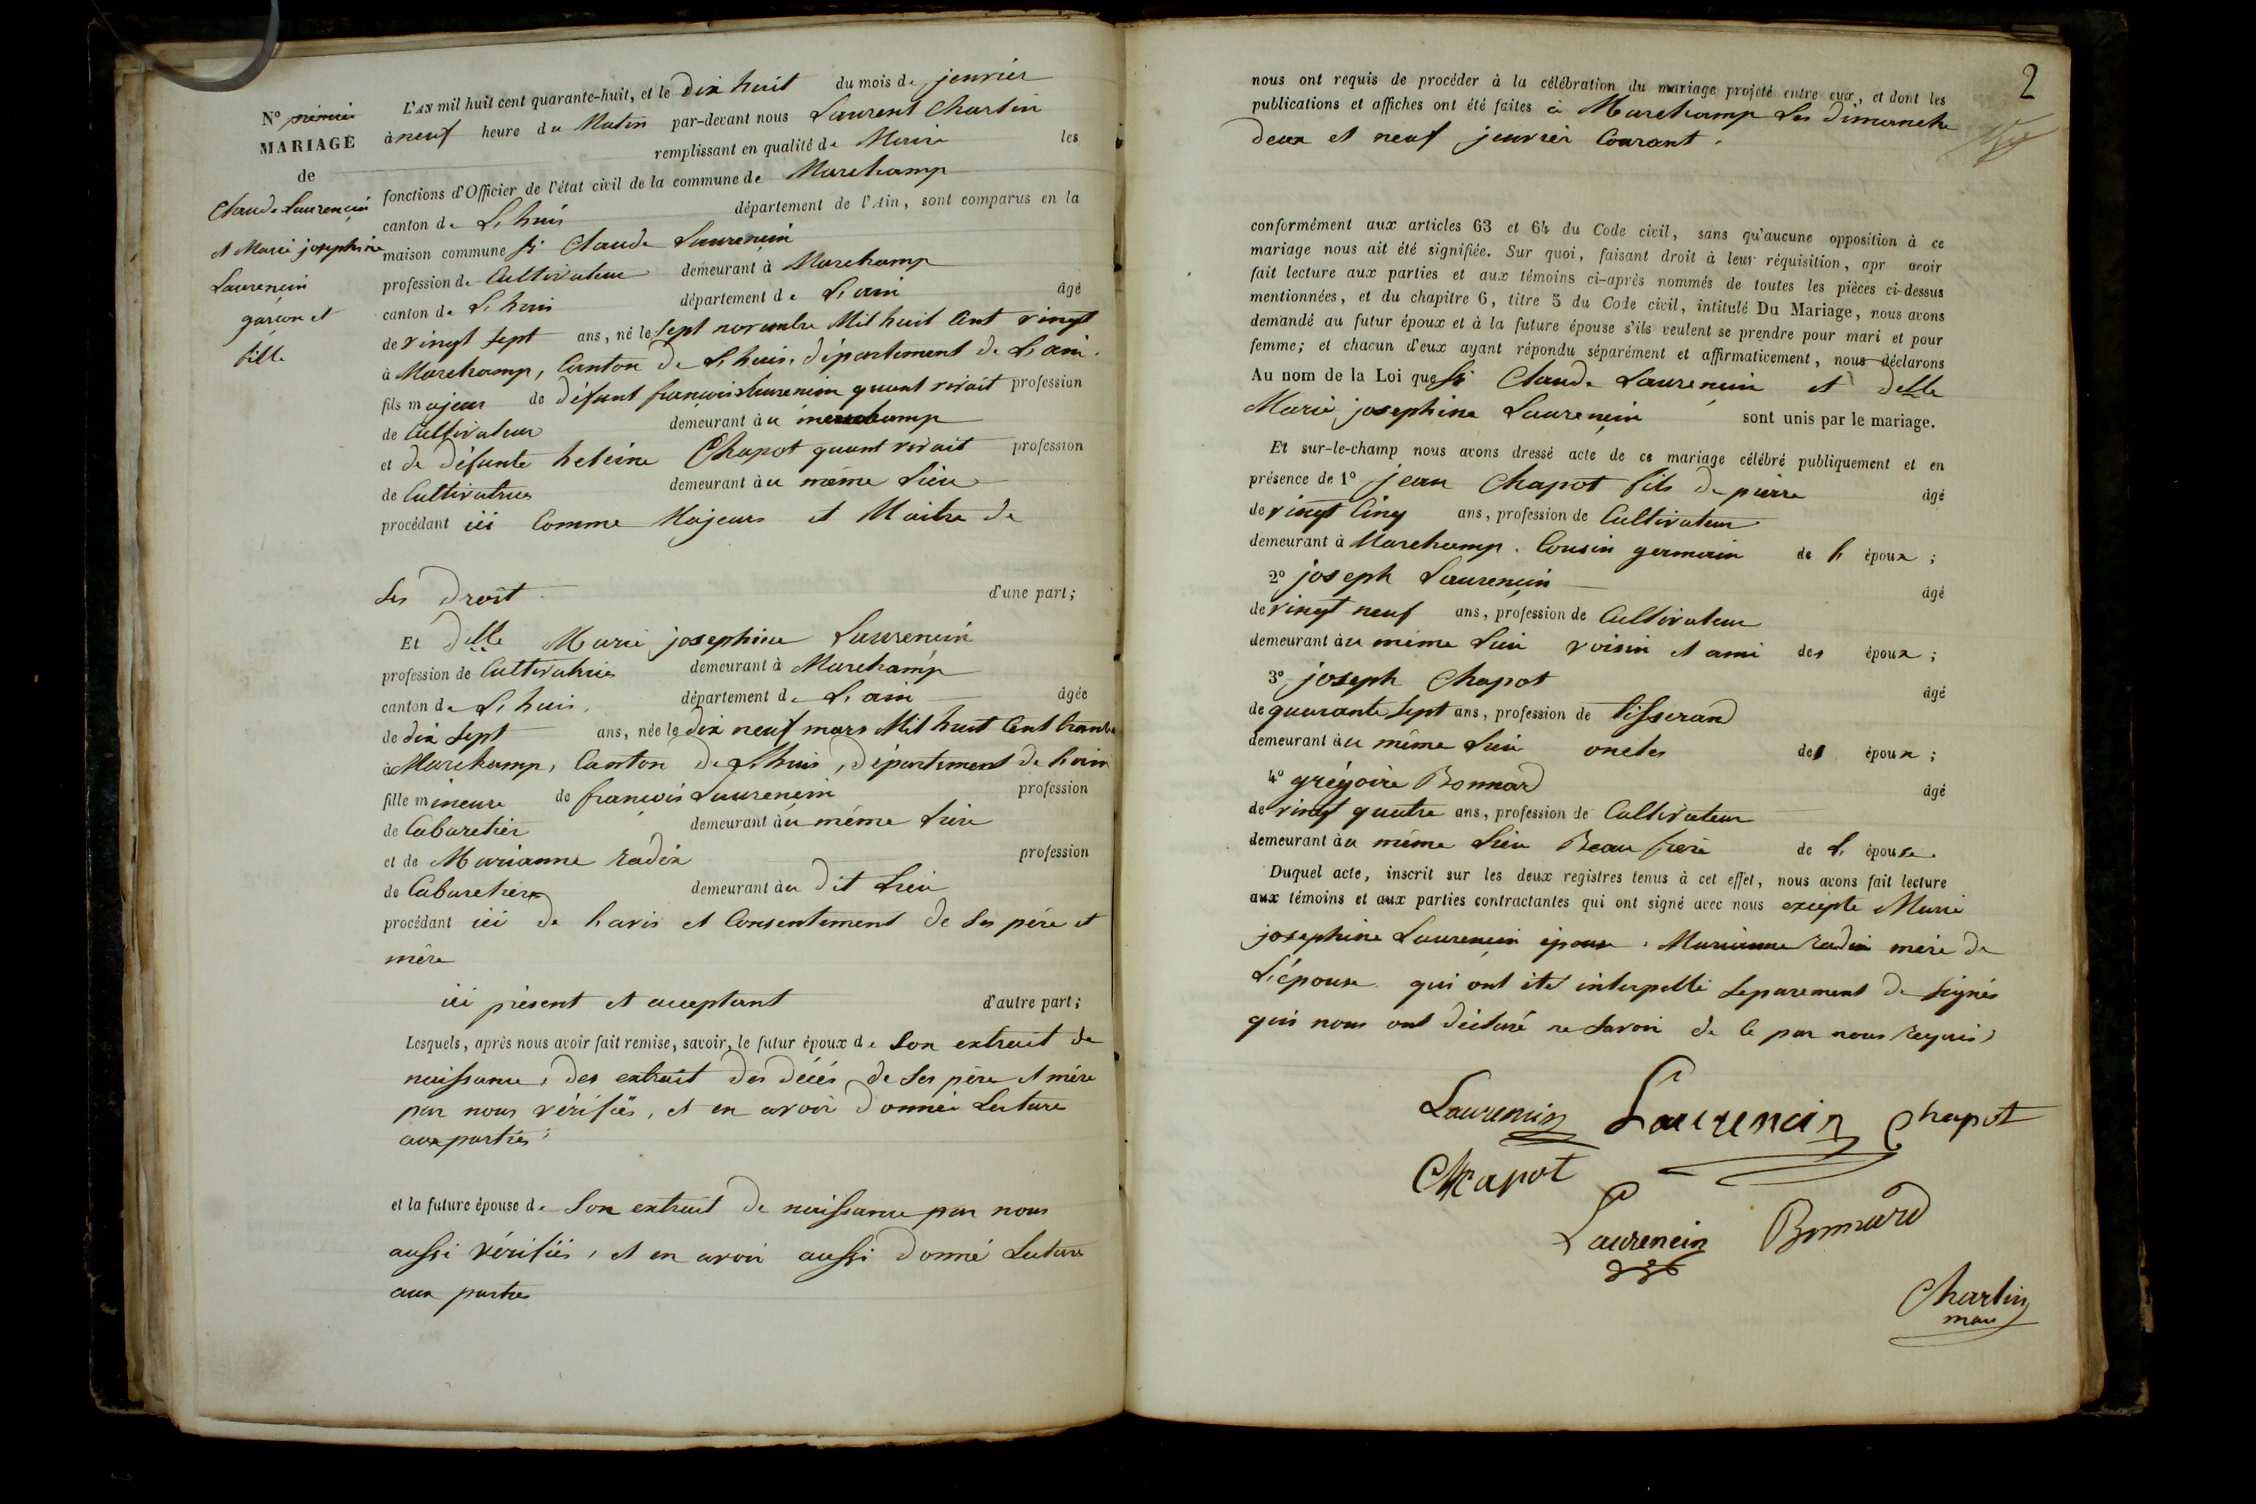 N° premier
MARIAGE
de
Claude Laurencin
et Marie josephine
Laurencin
garçon et
fille
L'AN mil huit cent quarante-huit, et le dix huit du mois de jenvrier
à neuf heure du Matin par-devant nous Laurent Charlin
remplissant en qualité de Maire les
fonctions d'Officier de l'état civil de la commune de Marchamp
canton de L'huis département de l'Ain, sont comparus en la
maison commune Sr Claude Laurencin
profession de Cultivateur demeurant à Marchamp
canton de L'huis département de L'ain âgé
de vingt sept ans, né le sept novembre Mil huit Cent vingt
à Marchamp, Canton de L'huis, département de L'ain.
fils majeur de défunt francois Laurencin quant vivait profession
de Cultivateur demeurant à u marchamp
et de défunte heleine Chapot quant vivait profession
de Cultivatrice demeurant à u même Lieu
procédant ici Comme Majeur et Maitre de
Ses droit d'une part;
Et delle Marie josephine Laurencin
profession de Cultivatrice demeurant à Marchamp
canton de L'huis, département de L'ain âgée
de dix sept ans, née le dix neuf mars Mil huit Cent trante
à Marchamp, Canton de L'huis, département de L'ain
fille mineure de francois Laurencin profession
de Cabaretier demeurant à u même Lieu
et de Marianne radix profession
de Cabaretiere demeurant à u dit Lieu
procédant ici de L'avis et Consentement de Ses père et
mère
ici présent et acceptant d'autre part;
Lesquels, après nous avoir fait remise, savoir, le futur époux de Son extrait de
naissance, des extrait des décés de Ses père et mère
par nous vérifiés, et en avoir donnée Lecture
aux parties;
et la future épouse de Son extrait de naissance par nous
aussi vérifiés, et en avoir aussi donné Lecture
aux parties
2
nous ont requis de procéder à la célébration du mariage projeté entre eux, et dont les
publications et affiches ont été faites à Marchamp Les dimanche
deux et neuf jenvrier Courant.
conformément aux articles 63 et 64 du Code civil, sans qu'aucune opposition à ce
mariage nous ait été signifiée. Sur quoi, faisant droit à leur réquisition, apr avoir
fait lecture aux parties et aux témoins ci-après nommés de toutes les pièces ci-dessus
mentionnées, et du chapitre 6, titre 5 du Code civil, intitulé Du Mariage, nous avons
demandé au futur époux et à la future épouse s'ils veulent se prendre pour mari et pour
femme; et chacun d'eux ayant répondu séparément et affirmativement, nous déclarons
Au nom de la Loi que Sr Claude Laurencin et delle
Marie josephine Laurencin sont unis par le mariage.
Et sur-le-champ nous avons dressé acte de ce mariage célébré publiquement et en
présence de 1° jean Chapot fils de pierre âgé
de vingt Cinq ans, profession de Cultivateur
demeurant à Marchamp. Cousin germain de L' époux;
2° joseph Laurencin âgé
de vingt neuf ans, profession de Cultivateur
demeurant à u même Lieu voisin et ami des époux;
3° joseph Chapot âgé
de quarante Sept ans, profession de tisserand
demeurant à u même Lieu oncles des époux;
4° grégoire Bonnard âgé
de vingt quatre ans, profession de Cultivateur
demeurant à u même Lieu Beau frère de L' épouse.
Duquel acte, inscrit sur les deux registres tenus à cet effet, nous avons fait lecture
aux témoins et aux parties contractantes qui ont signé avec nous excepte Marie
josephine Laurencin épouse. Marianne radix mère de
L'épouse qui ont été interpellé Separement de signer
qui nous ont déclaré ne Savoir de Ce par nous requis
Laurencin Laurencin Chapot
Chapot
Laurencin Bonnard
Charlin
maire